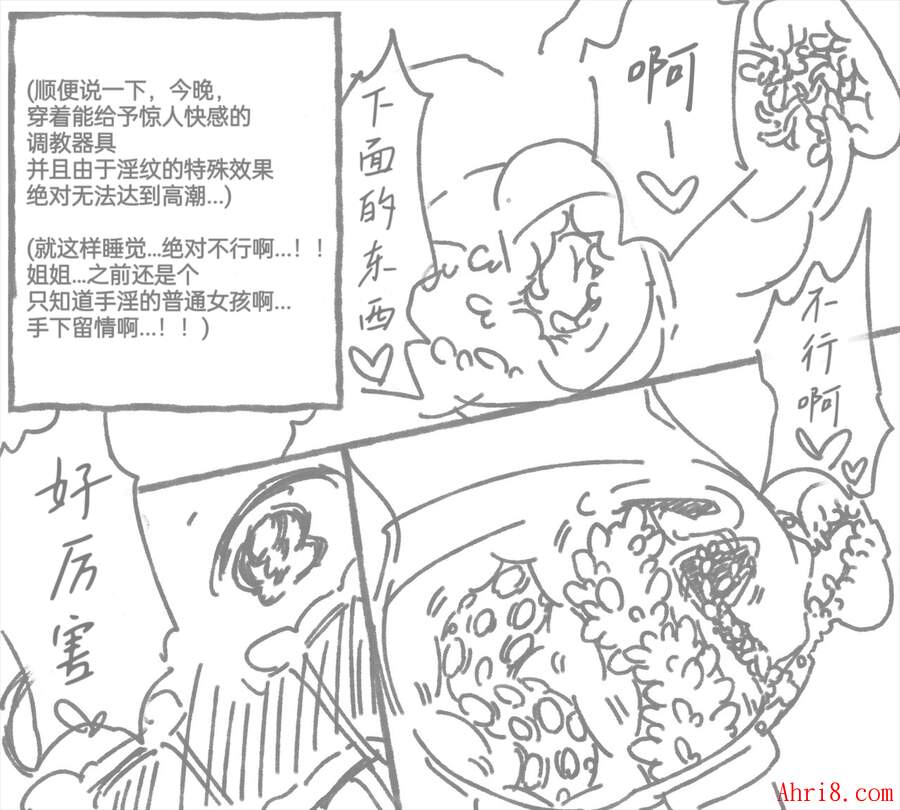 (顺便说一下，今晚，
穿着能给予惊人快感的
调教器具
并且由于淫纹的特殊效果
绝对无法达到高潮...)
(就这样睡觉...绝对不行啊...！！
姐姐...之前还是个
只知道手淫的普通女孩啊...
手下留情啊...！！)
下面的东西♡
啊－♡
不行啊♡♡
好厉害
Ahri8.com